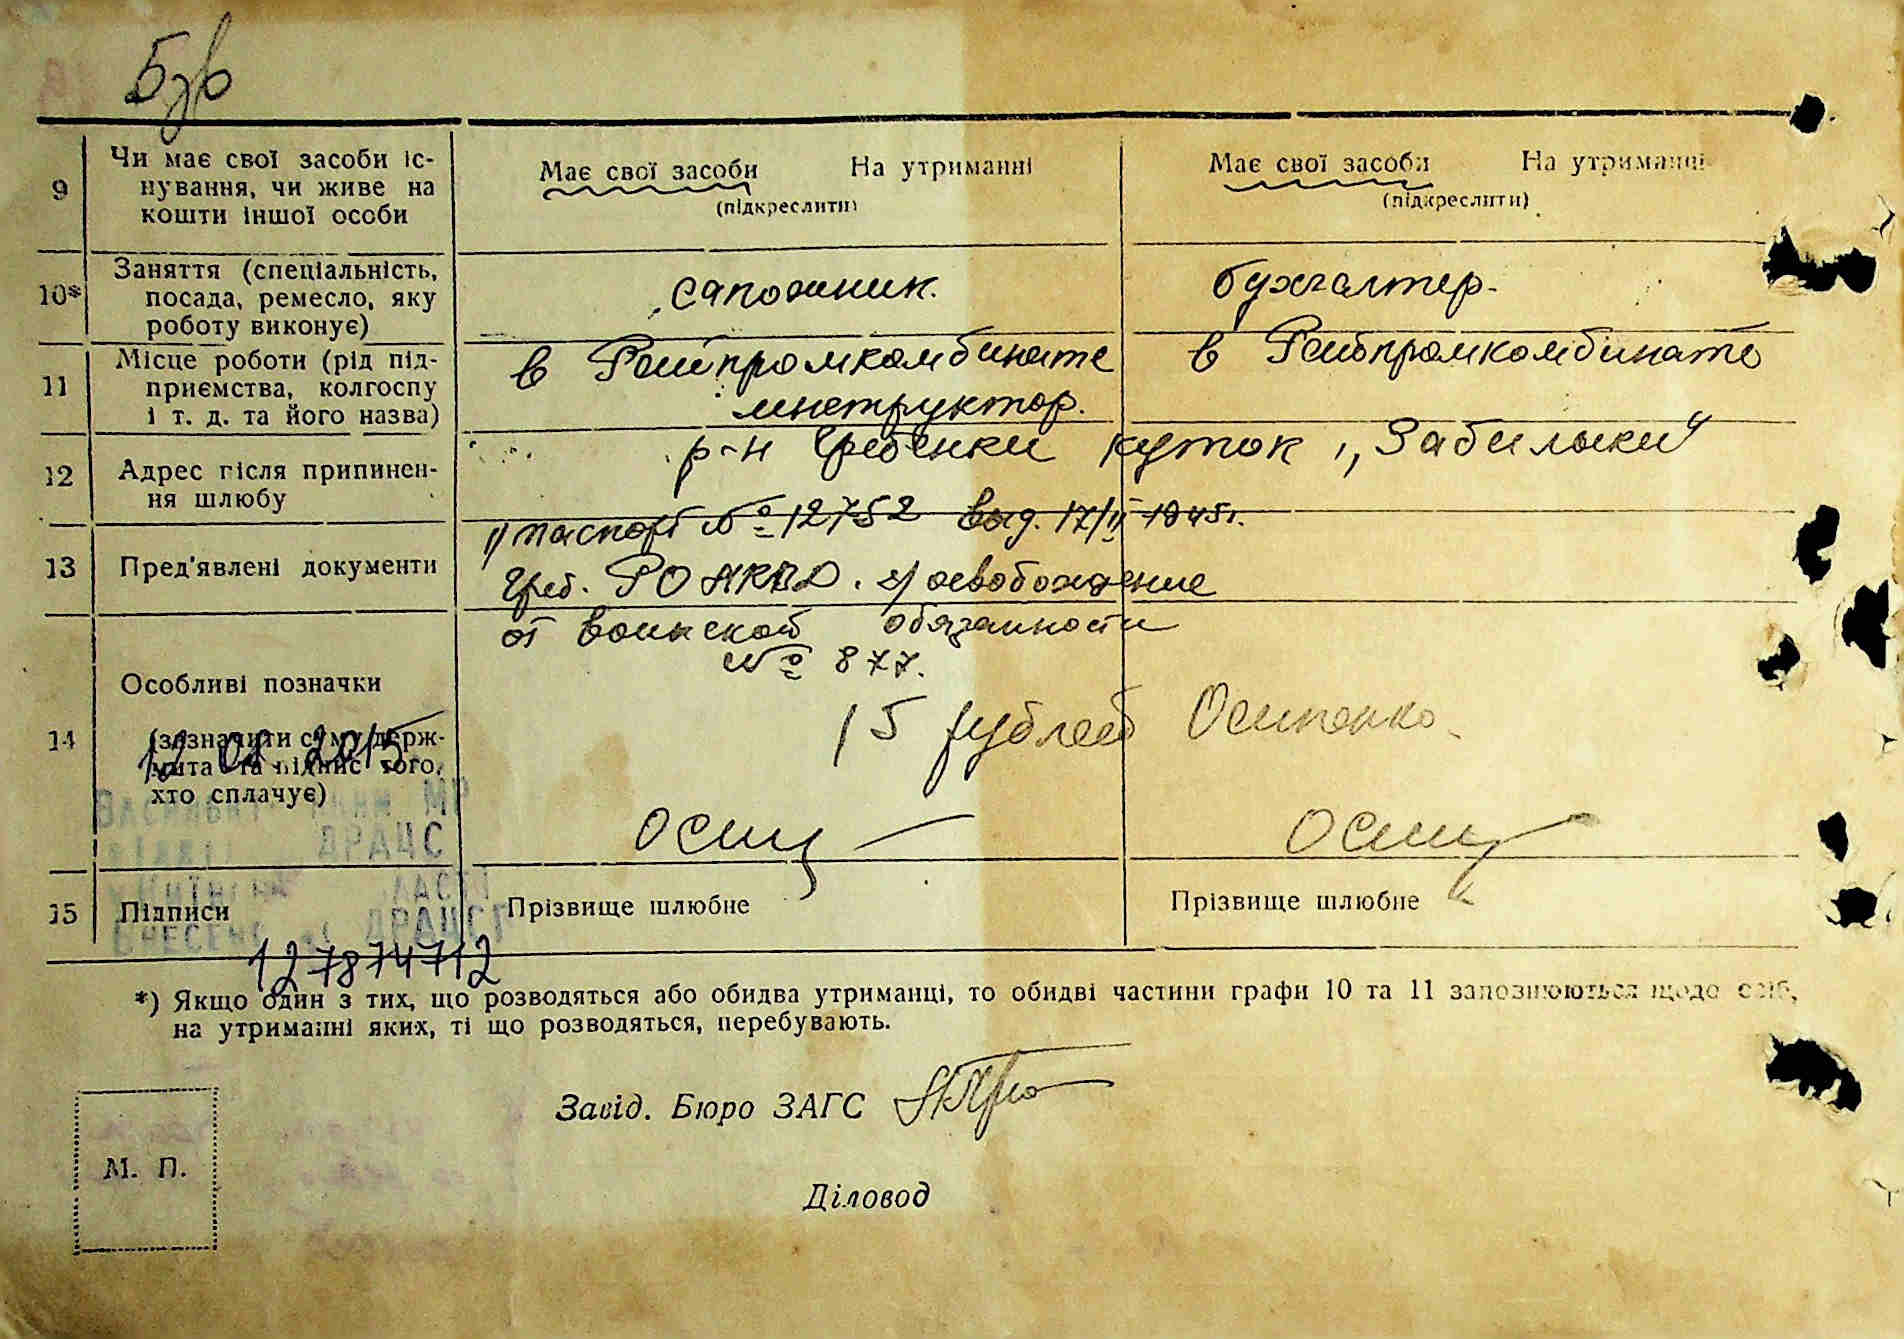 Бзв
9
Чи має свої засоби іс-
нування, чи живе на
кошти іншої особи
Має свої засоби На утриманні
(підкреслити)
Має свої засоби На утриманні
(підкреслити)
10*
Заняття (спеціальність,
посада, ремесло, яку
роботу виконує)
сапожник.
бухгалтер.
11
Місце роботи (рід під-
приємства, колгоспу
і т. д. та його назва)
в Райпромкомбинате
инструктор.
в Райпромкомбинате
12
Адрес після припинен-
ня шлюбу
р-н Гребенки куток „Забилыки"
13
Пред'явлені документи
1) паспорт № 12752 выд. 17/II 1945г.
Греб. РО НКВД. 2) освобождение
от воинской обязанности
№ 877.
14
Особливі позначки
(зазначити суму держ-
мита та підпис того,
хто сплачує)
12 08. 2015
15 рублей Осипенко.
МР
ДРАЦС
ВНЕСЕНО ДРАЦСГ
127874712
Осип
Осип
15
Підписи
Прізвище шлюбне
Прізвище шлюбне
*) Якщо один з тих, що розводяться або обидва утриманці, то обидві частини графи 10 та 11 заповнюються щодо осіб,
на утриманні яких, ті що розводяться, перебувають.
Завід. Бюро ЗАГС
М. П.
Діловод